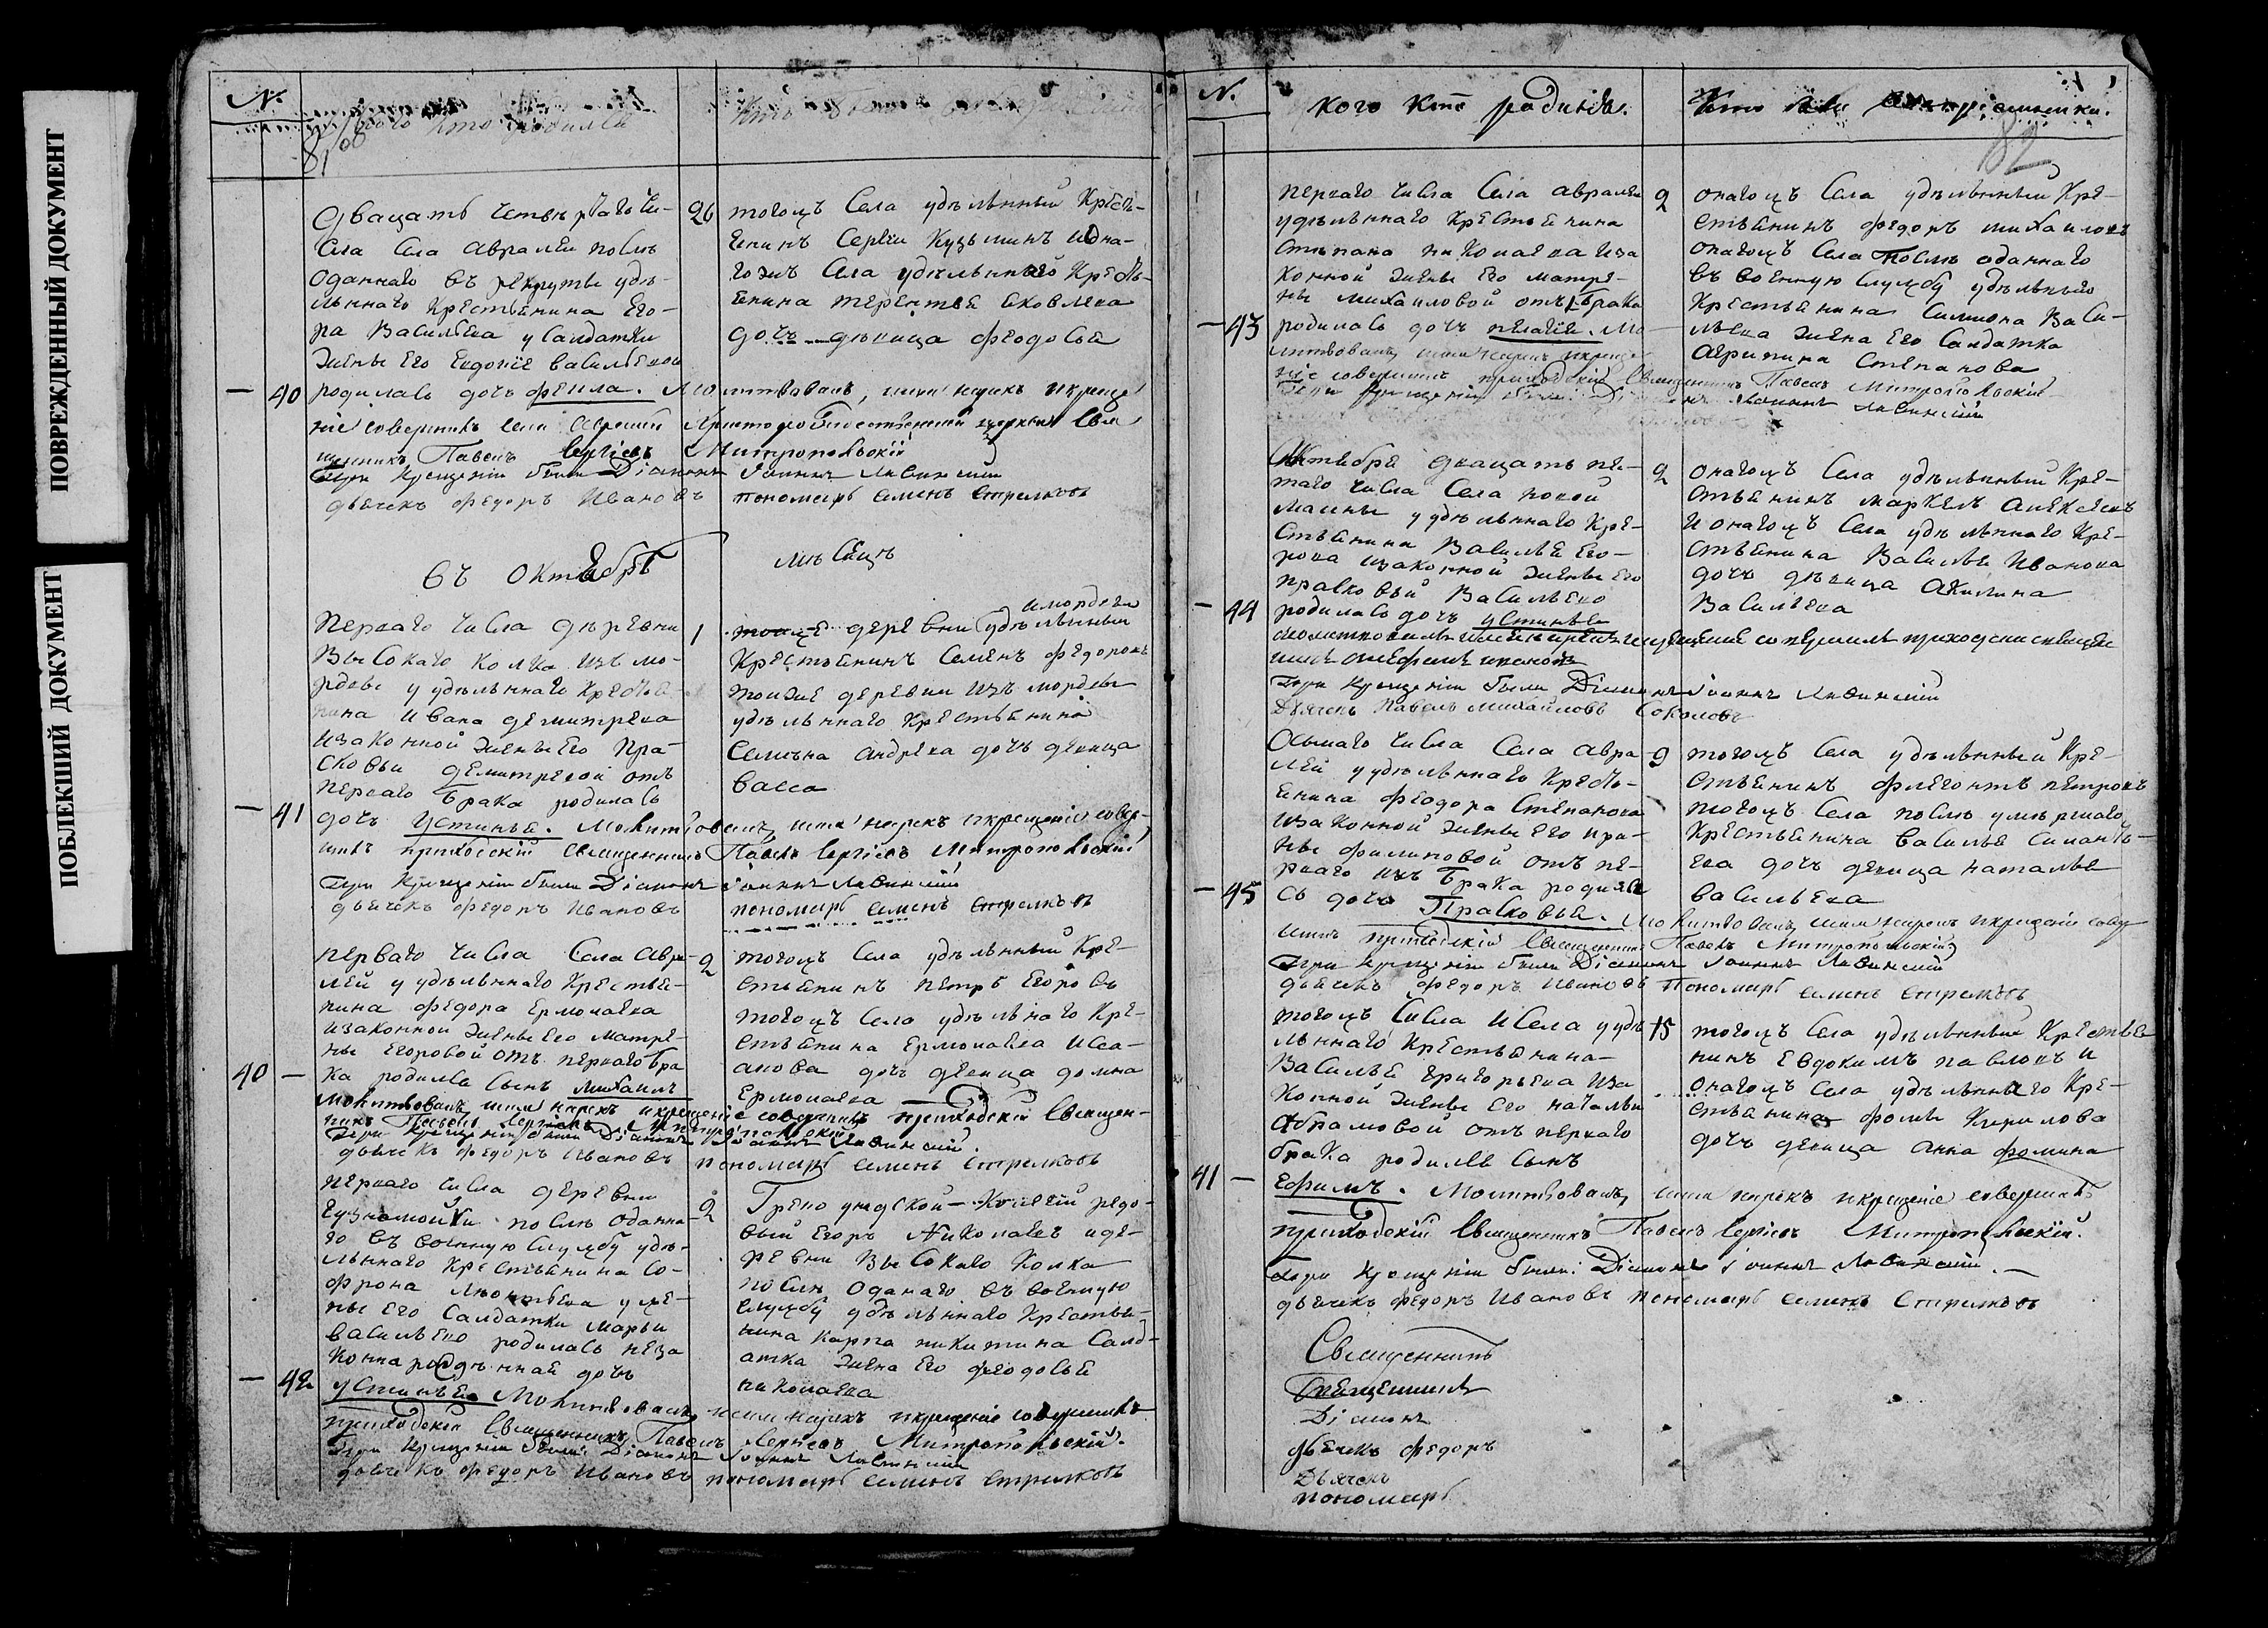 ПОВРЕЖДЕННЫЙ ДОКУМЕНТ
ПОБЛЕКШИЙ ДОКУМЕНТ
№
кто родился
81
двацать четвертаго чи-
сла села авралеи послѣ
оданнаго въ рекруты удѣ-
льннаго крестьенина его-
ра васильева у салдатки
жены его евдокіе васильевои
40 родилась дочь феила. молитвовалъ, имя нарекъ и креще
ніе совершилъ села авралей христорождественской церкви свя
щенникъ Павелъ Сергіевъ Митропольскій
при крещеніи были Діаконъ Іоаннъ Лавинскій
дьячекъ федоръ Ивановъ пономарь семенъ стрелковъ
26 тогожъ села удѣльнный кресть-
енинъ сергеи кузьминъ и она-
гожъ села удѣльннаго кресть-
енина терентье ековлева
дочь девица феодосье
въ октебрѣ месецъ
перваго числа деревни
высокаго колка изъ мо-
рдвы у удѣльннаго кресте-
нина ивана демитрева
и законной жены его пра-
сковьи демитревой отъ
перваго брака родилась
41 дочь устинье. молитвовалъ, имя нарекъ и крещеніе совер-
шилъ приходскій священникъ Павелъ Сергіевъ Митропольскій
при крещеніи были Діаконъ Іоаннъ Лавинскій
дьячекъ федоръ Ивановъ пономарь семенъ стрелковъ
изъ мордвы
1 тоиже деревни удѣльнный
крестьенинъ семенъ федоровъ
тоиже деревни изъ мордвы
удѣльннаго крестьенина
семъна андрева дочь девица
васса
перваго числа села авра-
лей у удѣльннаго крестье-
нина федора ермолаева
и законнои жены его матре-
ны егоровой отъ перваго бра
40 ка родилсе сынъ михаилъ
молитвовалъ, имя нарекъ и крещеніе совершилъ приходскій священ-
никъ Павелъ Сергіевъ Митропольскій
при крещеніи были Діаконъ Іоаннъ Лавинскій.
дьячекъ федоръ Ивановъ пономарь семенъ стрелковъ
2 тогожъ села удѣльнный кре-
стьенинъ петръ егоровъ
тогожъ села удѣльнаго кре-
стьенина ермолаева исса-
анова дочь девица домна
ермолаева
перваго числа деревни
послѣ оданна-
го въ воинную службу удѣ-
льннаго крестьенина со-
фрона у же-
ны его салдатки марьи
васильево родилась неза
коннарожденнай дочь
42 устинье молитвовалъ, имя нарекъ и крещеніе совершилъ
приходскій священникъ Павелъ Сергіевъ Митропольскій.
при крещеніи были: Діаконъ Іоаннъ Лавинскій
дьячекъ федоръ Ивановъ пономарь семенъ стрелковъ
2 редо-
вый егоръ николаевъ и де-
ревни высокаго колка
послѣ оданаго въ военную
службу удѣльннаго крестье-
нина карпа никитина салд-
атка жена его феодосье
николаева
№
у кого кто родился.
кто были воспріемники.
82
перваго числа села авралеи
удѣльннаго крестьенина
степана николаева и за
конной жены его матре-
ны михаиловой отъ 1 брака
43 родилась дочь пелагіе. мо
литвовалъ имя нарекъ и креще
ніе совершилъ приходскій священникъ Павелъ Митропольскій
при крещеніи были: Діаконъ Іоаннъ Лавинскій
2 онагожъ села удѣльнный кре-
стьенинъ федоръ михаиловъ
онагожъ села послѣ оданнаго
въ военную службу удѣльнаго
крестьенина симиона васи-
льева жена его салдатка
агрипина степанова
октебре двацать пе-
таго числа села новой
маины у удѣльннаго кре-
стьенина василье его-
рова и законной жены его
прасковьи васильево
44 родилась дочь устинье
молитвовалъ имя нарекъ и крещение совершилъ приходски свеще
никъ
при крещеніи были Діаконъ Іоаннъ Лавинскій
Дьячекъ павелъ михайловъ соколовъ
2 онагожъ села удѣльнный кре-
стьенинъ маркелъ алексеевъ
и онагожъ села удѣльннаго кре-
стьенина василье иванова
дочь девица акилина
васильева
осьмаго числа села авра
лей у удѣльннаго кресть-
енина феодора степанова
и законной жены его ири-
ны филиповой отъ пе-
рваго ихъ брака родила
45 сь дочь прасковье. молитвовалъ, имя нарекъ и крещеніе совер
шилъ приходскій священникъ Павелъ Митропольскій
при крещеніи были Діаконъ Іоаннъ Лавинскій
дьячекъ федоръ Ивановъ пономарь семенъ стрелковъ
9 тогожъ села удѣльнный кре-
стьенинъ флегонтъ петровъ
тогожъ села послѣ умершаго
крестьенина василье силанть-
ева дочь девица наталье
васильева
тогожъ числа и села у удѣ
льннаго крестьенина
василье григорьева и за
конной жены его натальи
абрамовой отъ перваго
брака родилсе сынъ
41 ефимъ. молитвовалъ, имя нарекъ и крещеніе совершилъ
приходскій священникъ Павелъ Сергіевъ Митропольскій.
при крещеніи были: Діаконъ Іоаннъ Лавинскій.
дьячекъ федоръ Ивановъ пономарь семенъ стрелковъ
15 тогожъ села удѣльнный крестье
нинъ евдокимъ павловъ и
онагожъ села удѣльннаго кре-
стьенина фомы кирилова
дочь девица анна фомина
Священникъ
Священникъ
Діаконъ
дьячекъ федоръ
Дьячекъ
пономарь